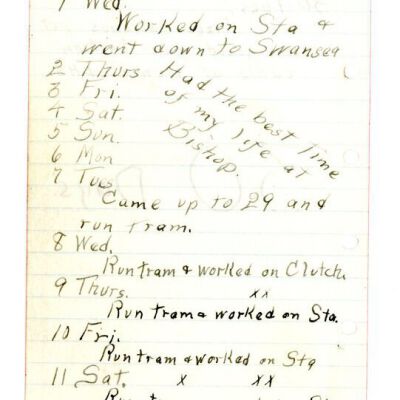 1 Wed.
Worked on Sta &
went down to Swansea
2 Thurs
3 Fri.
4 Sat.
5 Sun.
6 Mon
Had the best time
of my life at
Bishop.
7 Tues
Came up to 29 and
run tram.
8 Wed.
Run tram & worked on Clutch.
9 Thurs. xx
Run tram & worked on Sta.
10 Fri.
Run tram & worked on Sta
11 Sat. x xx
Run tram